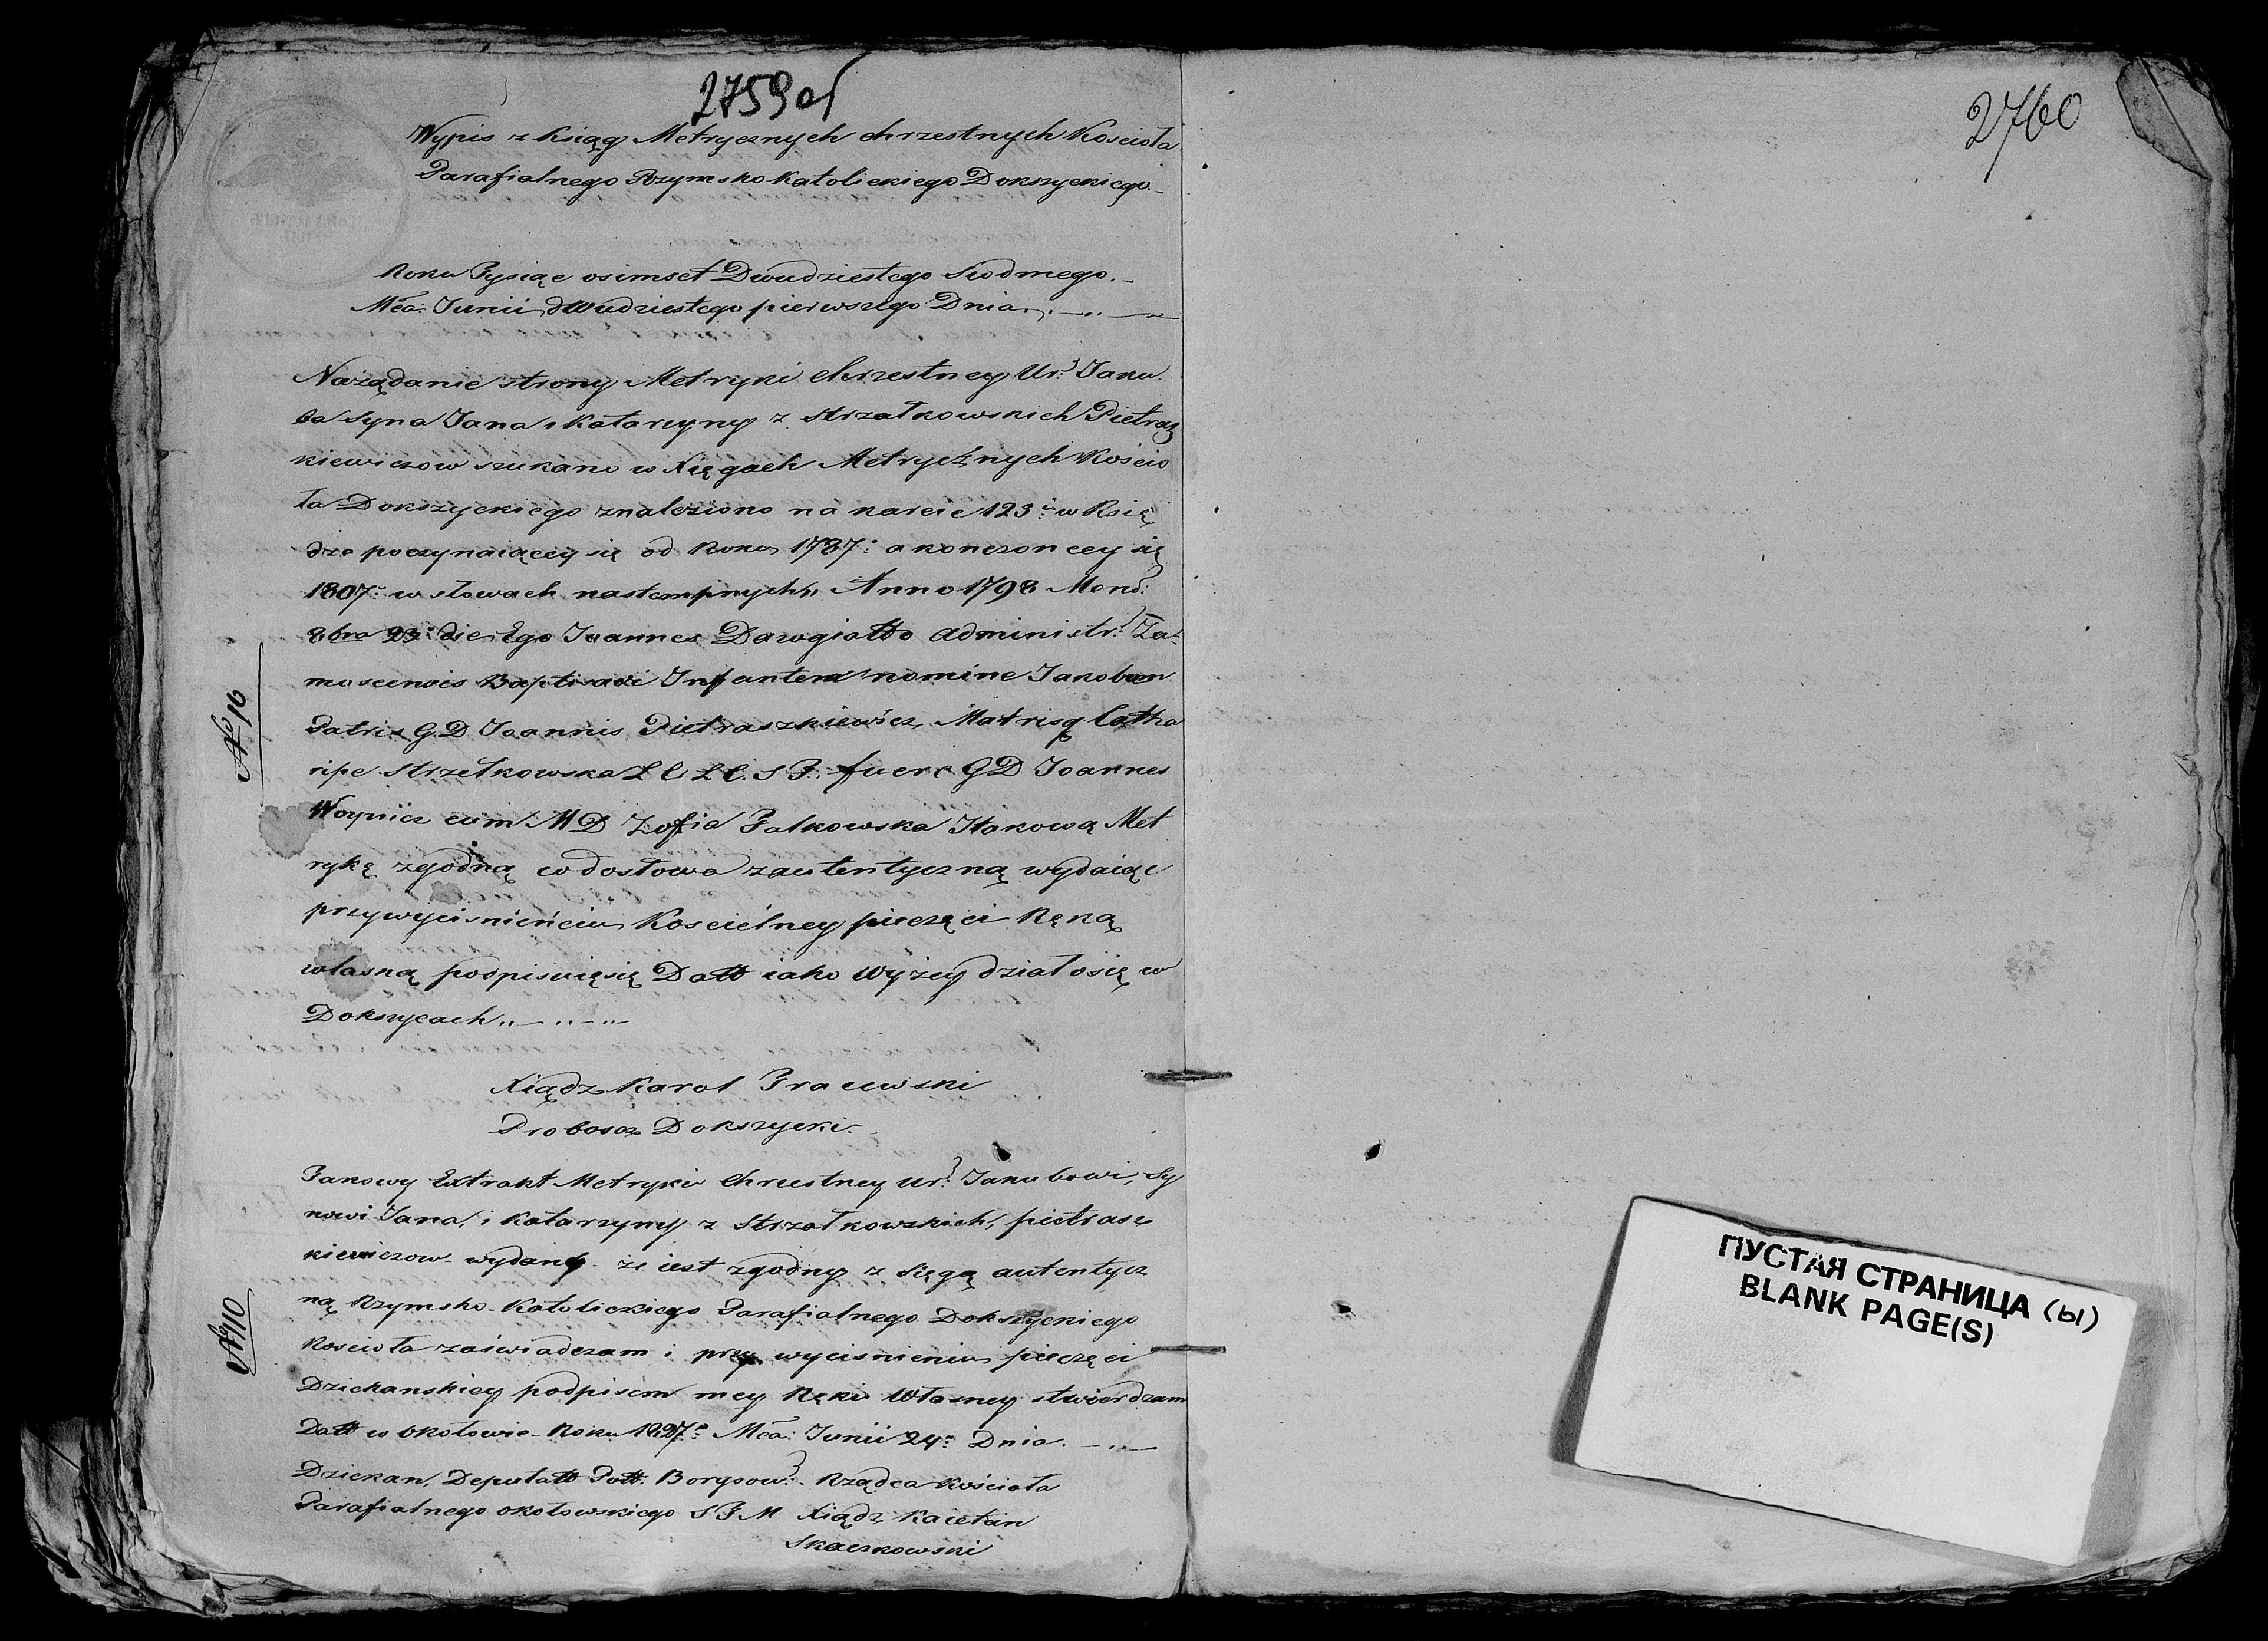 2759 об
Wypis z Ksiąg Metrycznych chrzestnych Kościoła
Parafialnego Rzymsko Katolickiego Dokszyckiego.
Roku Tysiąc osimset Dwudziestego Siodmego.
Mca: Junii dwudziestego pierwszego Dnia.
Nażądanie strony Metryki Chrzestney Ur: Jaku
ba Syna Jana i Katarzyny z Strzałkowskich Pietrasz
kiewiczow szukano w Xięgach Metrycznych Kościo
ła Dokszyckiego znaleziono na karcie 123: w Księ
dze poczynaiącey się od Roku 1787: a konczoncey się
1807: w słowach nastempnych" Anno 1798 Mens:
8bre 23: die Ego Joannes Dawgiałło Administr: Za
moscensis Baptisavi Infantem nomine Jakobum
Patris G D Joannis Pietraszkiewicz Matrisq Catha
rine Strzełkowska L C. L C. S P: fuere G D Joannes
Woynicz cum M D Zofia Falkowska Jtakową Met
rykę zgodną co do słowa z autentyczną wydaiąc
przy wyciśnieńciu Kościelney pieczęci Ręką
własną podpisuię się Datt iako wyżey działo się w
Dokszycach
Xiądz Karol Fraiewski
Probosz Dokszycki
Takowy Extrakt Metryki Chrzestney ur: Jakubowi, Sy
nowi Jana, i Katarzyny z Strzałkowskich, pietrasz
kiewiczow wydany że iest zgodny z Sięgą autentycz
ną Rzymsko-Katolickiego Parafialnego Dokszyckiego
Kościoła zaświadczam i przy wyciśnieniu pieczęci
Dziekanskiey podpisem mey Ręki Własney stwierdzam
Datt w Okołowie Roku 1827: Mca: Junii 24: Dnia.
Dziekan, Deputatt Pott: Borysow: Rządca Kościoła
Parafialnego okołowskiego S T M Xiądz Kaietan
Skaczkowski
№ 16
№ 110
2760
ПУСТАЯ СТРАНИЦА (Ы)
BLANK PAGE(S)